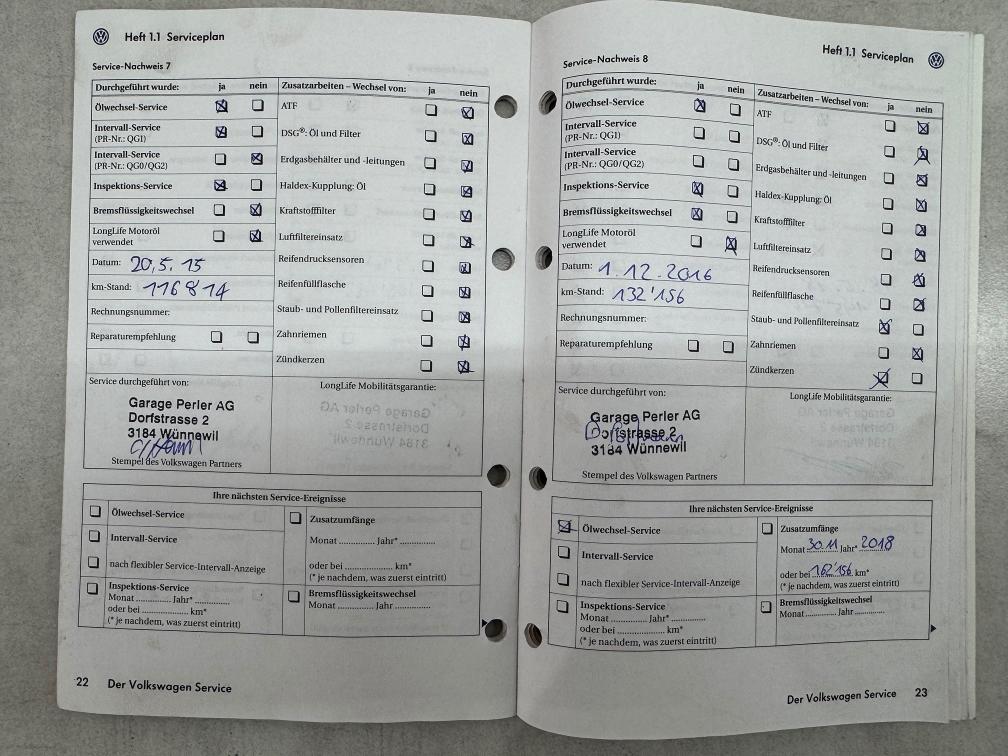 Heft 1.1 Serviceplan
Service-Nachweis 7
Durchgeführt wurde: ja nein
Ölwechsel-Service
Intervall-Service
(PR-Nr.: QG1)
Intervall-Service
(PR-Nr.: QG0/QG2)
Inspektions-Service
Bremsflüssigkeitswechsel
LongLife Motoröl
verwendet
Datum: 20.5.15
km-Stand: 116814
Rechnungsnummer:
Reparaturempfehlung
Zusatzarbeiten – Wechsel von: ja nein
ATF
DSG®: Öl und Filter
Erdgasbehälter und -leitungen
Haldex-Kupplung: Öl
Kraftstofffilter
Luftfiltereinsatz
Reifendrucksensoren
Reifenfüllflasche
Staub- und Pollenfiltereinsatz
Zahnriemen
Zündkerzen
Service durchgeführt von:
Garage Perler AG
Dorfstrasse 2
3184 Wünnewil
Stempel des Volkswagen Partners
LongLife Mobilitätsgarantie:
Ihre nächsten Service-Ereignisse
Ölwechsel-Service
Intervall-Service
nach flexibler Service-Intervall-Anzeige
Inspektions-Service
Monat ............ Jahr* ............
oder bei ............ km*
(* je nachdem, was zuerst eintritt)
Zusatzumfänge
Monat ............ Jahr* ............
oder bei ............ km*
(* je nachdem, was zuerst eintritt)
Bremsflüssigkeitswechsel
Monat ............ Jahr ............
22 Der Volkswagen Service
Heft 1.1 Serviceplan
Service-Nachweis 8
Durchgeführt wurde: ja nein
Ölwechsel-Service
Intervall-Service
(PR-Nr.: QG1)
Intervall-Service
(PR-Nr.: QG0/QG2)
Inspektions-Service
Bremsflüssigkeitswechsel
LongLife Motoröl
verwendet
Datum: 1.12.2016
km-Stand: 132'156
Rechnungsnummer:
Reparaturempfehlung
Zusatzarbeiten – Wechsel von: ja nein
ATF
DSG®: Öl und Filter
Erdgasbehälter und -leitungen
Haldex-Kupplung: Öl
Kraftstofffilter
Luftfiltereinsatz
Reifendrucksensoren
Reifenfüllflasche
Staub- und Pollenfiltereinsatz
Zahnriemen
Zündkerzen
Service durchgeführt von:
Garage Perler AG
Dorfstrasse 2
3184 Wünnewil
Stempel des Volkswagen Partners
LongLife Mobilitätsgarantie:
Ihre nächsten Service-Ereignisse
Ölwechsel-Service
Intervall-Service
nach flexibler Service-Intervall-Anzeige
Inspektions-Service
Monat ............ Jahr* ............
oder bei ............ km*
(* je nachdem, was zuerst eintritt)
Zusatzumfänge
Monat 30.11 Jahr* 2018
oder bei 162'156 km*
(* je nachdem, was zuerst eintritt)
Bremsflüssigkeitswechsel
Monat ............ Jahr ............
Der Volkswagen Service 23